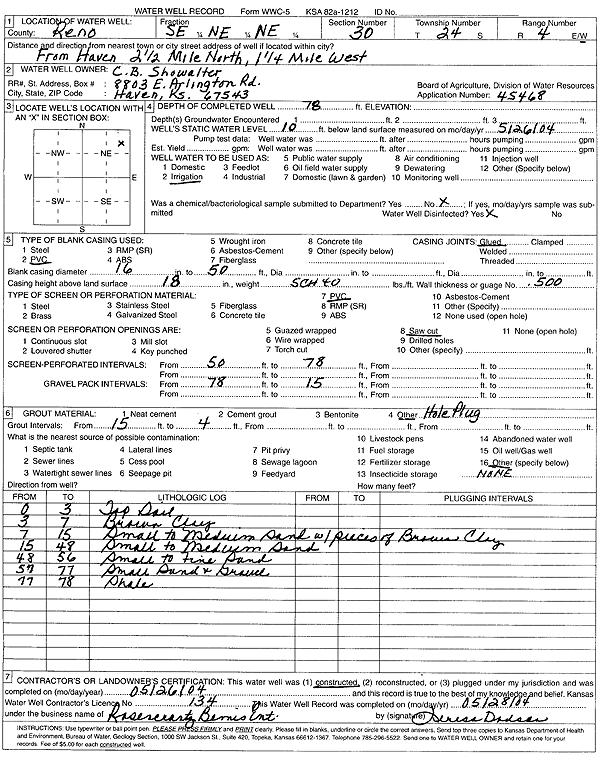 WATER WELL RECORD Form WWC-5 KSA 82a-1212 ID No.
1 LOCATION OF WATER WELL: Fraction Section Number Township Number Range Number
County: Reno SE ¼ NE ¼ NE ¼ 30 T 24 S R 4 E/W
Distance and direction from nearest town or city street address of well if located within city?
From Haven 2 1/2 Mile North, 1 1/4 Mile West
2 WATER WELL OWNER: C.B. Showalter
RR#, St. Address, Box # : 8803 E. Arlington Rd. Board of Agriculture, Division of Water Resources
City, State, ZIP Code : Haven, KS. 67543 Application Number: 45468
3 LOCATE WELL'S LOCATION WITH AN "X" IN SECTION BOX:
N
X
NW NE
W E
SW SE
S
4 DEPTH OF COMPLETED WELL 78 ft. ELEVATION:
Depth(s) Groundwater Encountered 1 ft. 2 ft. 3 ft.
WELL'S STATIC WATER LEVEL 10 ft. below land surface measured on mo/day/yr 5/26/04
Pump test data: Well water was ft. after hours pumping gpm
Est. Yield gpm: Well water was ft. after hours pumping gpm
WELL WATER TO BE USED AS: 5 Public water supply 8 Air conditioning 11 Injection well
1 Domestic 3 Feedlot 6 Oil field water supply 9 Dewatering 12 Other (Specify below)
2 Irrigation 4 Industrial 7 Domestic (lawn & garden) 10 Monitoring well
Was a chemical/bacteriological sample submitted to Department? Yes No X ; If yes, mo/day/yrs sample was sub-
mitted Water Well Disinfected? Yes X No
5 TYPE OF BLANK CASING USED: 5 Wrought iron 8 Concrete tile CASING JOINTS: Glued Clamped
1 Steel 3 RMP (SR) 6 Asbestos-Cement 9 Other (specify below) Welded
2 PVC 4 ABS 7 Fiberglass Threaded
Blank casing diameter 16 in. to 50 ft., Dia in. to ft., Dia in. to ft.
Casing height above land surface 18 in., weight SCH 40 lbs./ft. Wall thickness or guage No. .500
TYPE OF SCREEN OR PERFORATION MATERIAL: 7 PVC 10 Asbestos-Cement
1 Steel 3 Stainless Steel 5 Fiberglass 8 RMP (SR) 11 Other (Specify)
2 Brass 4 Galvanized Steel 6 Concrete tile 9 ABS 12 None used (open hole)
SCREEN OR PERFORATION OPENINGS ARE: 5 Guazed wrapped 8 Saw cut 11 None (open hole)
1 Continuous slot 3 Mill slot 6 Wire wrapped 9 Drilled holes
2 Louvered shutter 4 Key punched 7 Torch cut 10 Other (specify) ft.
SCREEN-PERFORATED INTERVALS: From 50 ft. to 78 ft., From ft. to ft.
From ft. to ft., From ft. to ft.
GRAVEL PACK INTERVALS: From 78 ft. to 15 ft., From ft. to ft.
From ft. to ft., From ft. to ft.
6 GROUT MATERIAL: 1 Neat cement 2 Cement grout 3 Bentonite 4 Other Hole Plug
Grout Intervals: From 15 ft. to 4 ft., From ft. to ft., From ft. to ft.
What is the nearest source of possible contamination: 10 Livestock pens 14 Abandoned water well
1 Septic tank 4 Lateral lines 7 Pit privy 11 Fuel storage 15 Oil well/Gas well
2 Sewer lines 5 Cess pool 8 Sewage lagoon 12 Fertilizer storage 16 Other (specify below)
3 Watertight sewer lines 6 Seepage pit 9 Feedyard 13 Insecticide storage NONE
Direction from well? How many feet?
FROM TO LITHOLOGIC LOG FROM TO PLUGGING INTERVALS
0 3 Top Soil
3 7 Brown Clay
7 15 Small to Medium Sand w/ pieces of Brown Clay
15 48 Small to Medium Sand
48 56 Small to Fine Sand
57 77 Small Sand & Gravel
77 78 Shale
7 CONTRACTOR'S OR LANDOWNER'S CERTIFICATION: This water well was (1) constructed, (2) reconstructed, or (3) plugged under my jurisdiction and was
completed on (mo/day/year) 05/26/04 and this record is true to the best of my knowledge and belief. Kansas
Water Well Contractor's Licence No 134 This Water Well Record was completed on (mo/day/yr) 05/28/04
under the business name of Rosencrantz Bemis Ent. by (signature) Teresa Dodson
INSTRUCTIONS: Use typewriter or ball point pen. PLEASE PRESS FIRMLY and PRINT clearly. Please fill in blanks, underline or circle the correct answers. Send top three copies to Kansas Department of Health
and Environment, Bureau of Water, Geology Section, 1000 SW Jackson St., Suite 420, Topeka, Kansas 66612-1367. Telephone 785-296-5522. Send one to WATER WELL OWNER and retain one for your
records. Fee of $5.00 for each constructed well.